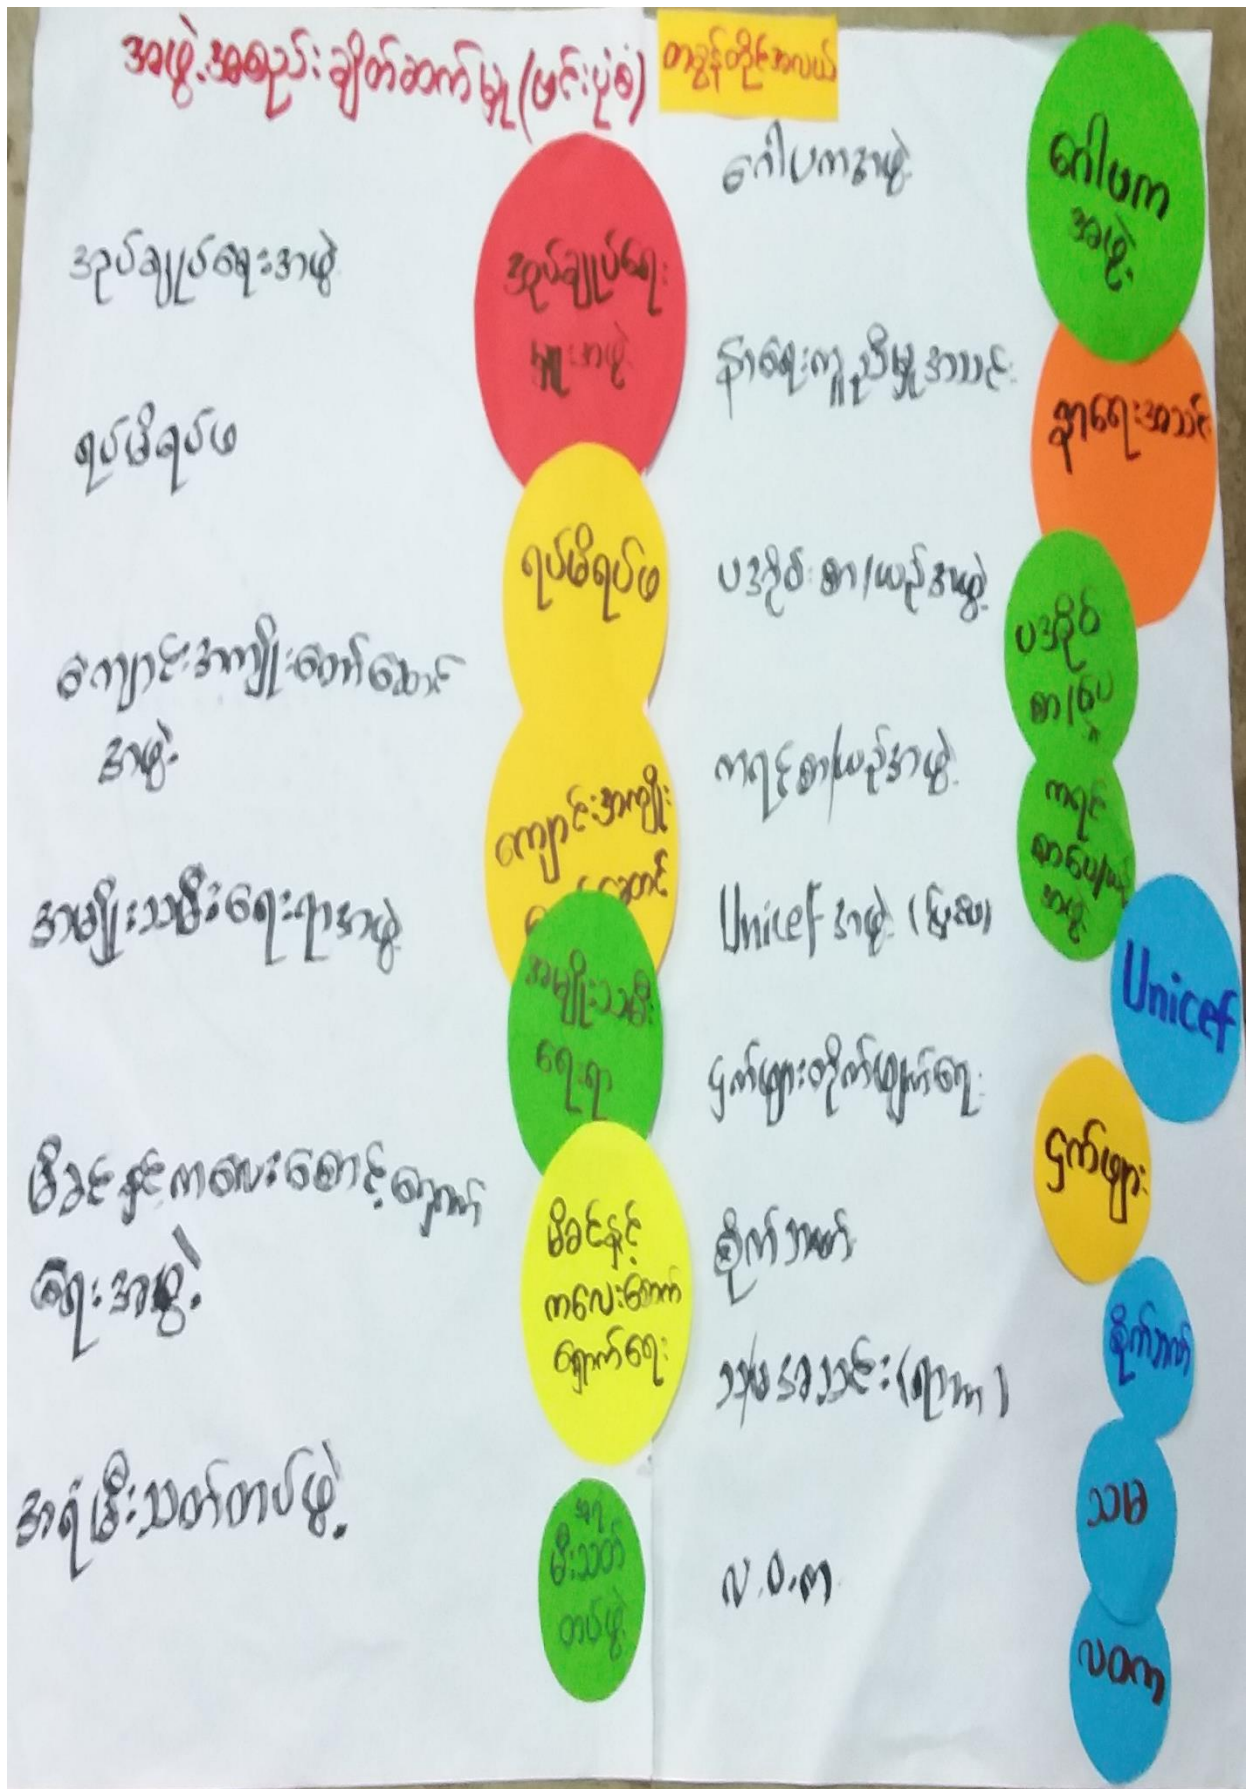 အဖွဲ့အစည်းချိတ်ဆက်မှု (ဗင်းပုံစံ)
တခွန်တိုင်အလယ်
အုပ်ချုပ်ရေးအဖွဲ့
ရပ်မိရပ်ဖ
ကျောင်းအကျိုးတော်ဆောင်
အဖွဲ့
အမျိုးသမီးရေးရာအဖွဲ့
မိခင်နှင့်ကလေးစောင့်ရှောက်
ရေးအဖွဲ့
အရံမီးသတ်တပ်ဖွဲ့
အုပ်ချုပ်ရေး
မှူးအဖွဲ့
ရပ်မိရပ်ဖ
ကျောင်းအကျိုး
ဆောင်
အမျိုးသမီး
ရေးရာ
မိခင်နှင့်
ကလေးစောက်
ရှောက်ရေး
အရံ
မီးသတ်
တပ်ဖွဲ့
ဂေါပကအဖွဲ့
နာရေးကူညီမှုအသင်း
ပအိုဝ်းစာ/ယဉ်အဖွဲ့
ကရင်စာ/ယဉ်အဖွဲ့
Unicef အဖွဲ့
ငှက်ဖျားတိုက်ဖျက်ရေး
စိုက်ဘဏ်
သမအသင်း
လ.ဝ.က
ဂေါပက
အဖွဲ့
နာရေးအသင်း
ပအိုဝ်
ကရင်
စာပေ/ယဉ်
အဖွဲ့
Unicef
ငှက်ဖျား
စိုက်ဘဏ်
သမ
လဝက